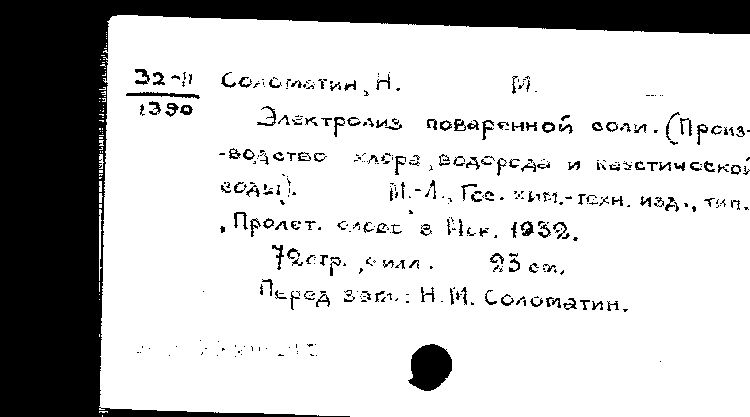 32-11 Соломатин, Н. М.
1390
Электролиз поваренной соли. (Произ-
-водство хлора, водорода и каустической
соды). М.-Л., Гос. хим.-техн. изд., тип.
"Пролет. слово" в Мск. 1932.
72 стр., с илл. 23 см.
Перед загл.: Н. М. Соломатин.